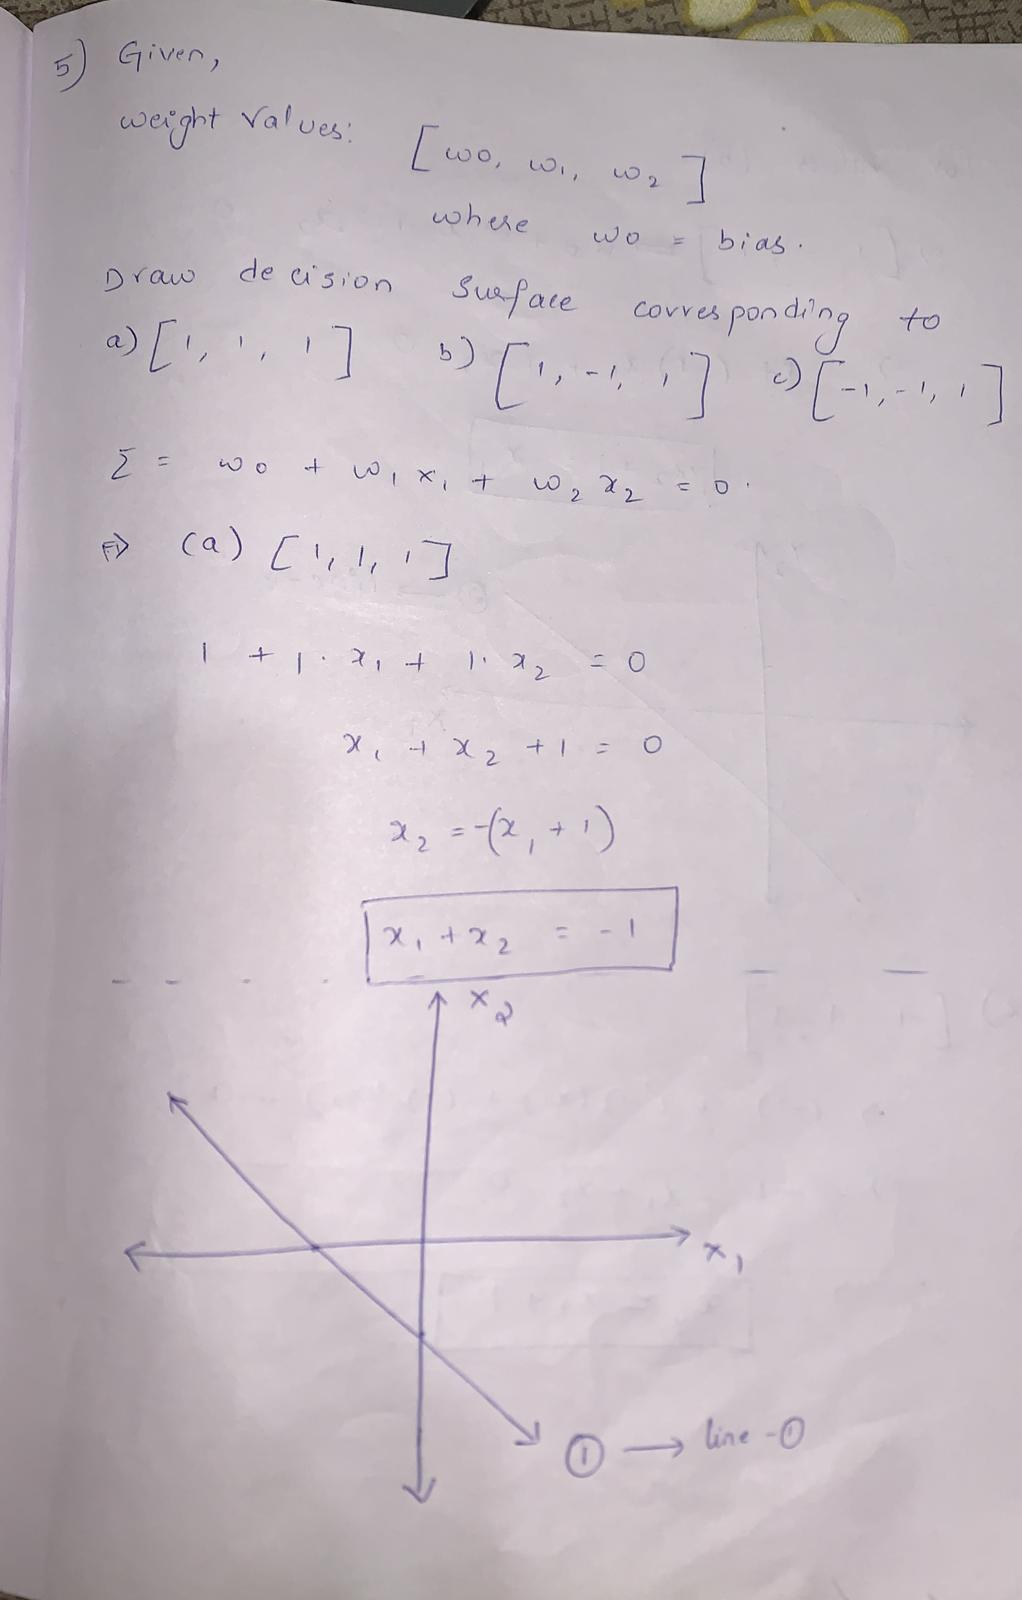 5) Given,
weight values: [w0, w₁, w₂]
where w0 = bias.
Draw decision surface corresponding to
a) [1, 1, 1] b) [1, -1, 1] c) [-1, -1, 1]
Σ = w0 + w₁x₁ + w₂x₂ = 0.
⇒ (a) [1, 1, 1]
1 + 1·x₁ + 1·x₂ = 0
x₁ + x₂ + 1 = 0
x₂ = -(x₁ + 1)
x₁ + x₂ = -1
x₂
x₁
① → line -①